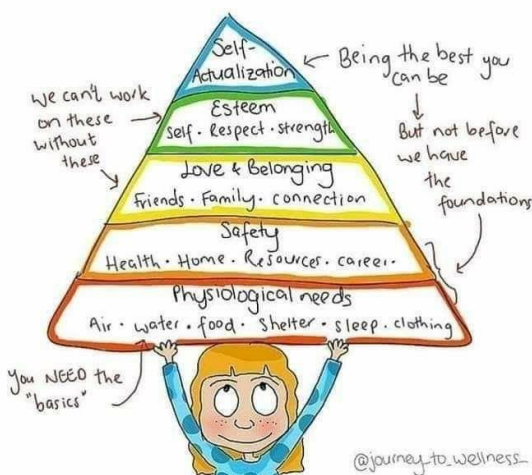 Self-
Actualization
Being the best you
can be
But not before
we have
the
foundations
we can't work
on these
without
these
Esteem
Self · Respect · strength
Love & Belonging
Friends · Family · connection
Safety
Health · Home · Resources · career ·
Physiological needs
Air · water · food · Shelter · sleep · clothing
You NEED the
"basics"
@journey_to_wellness_